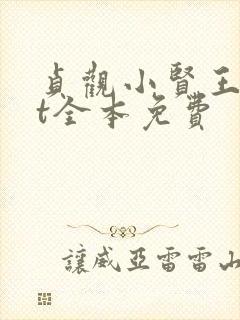 貞觀小賢王
t全本免費
讓威亞雷雷山